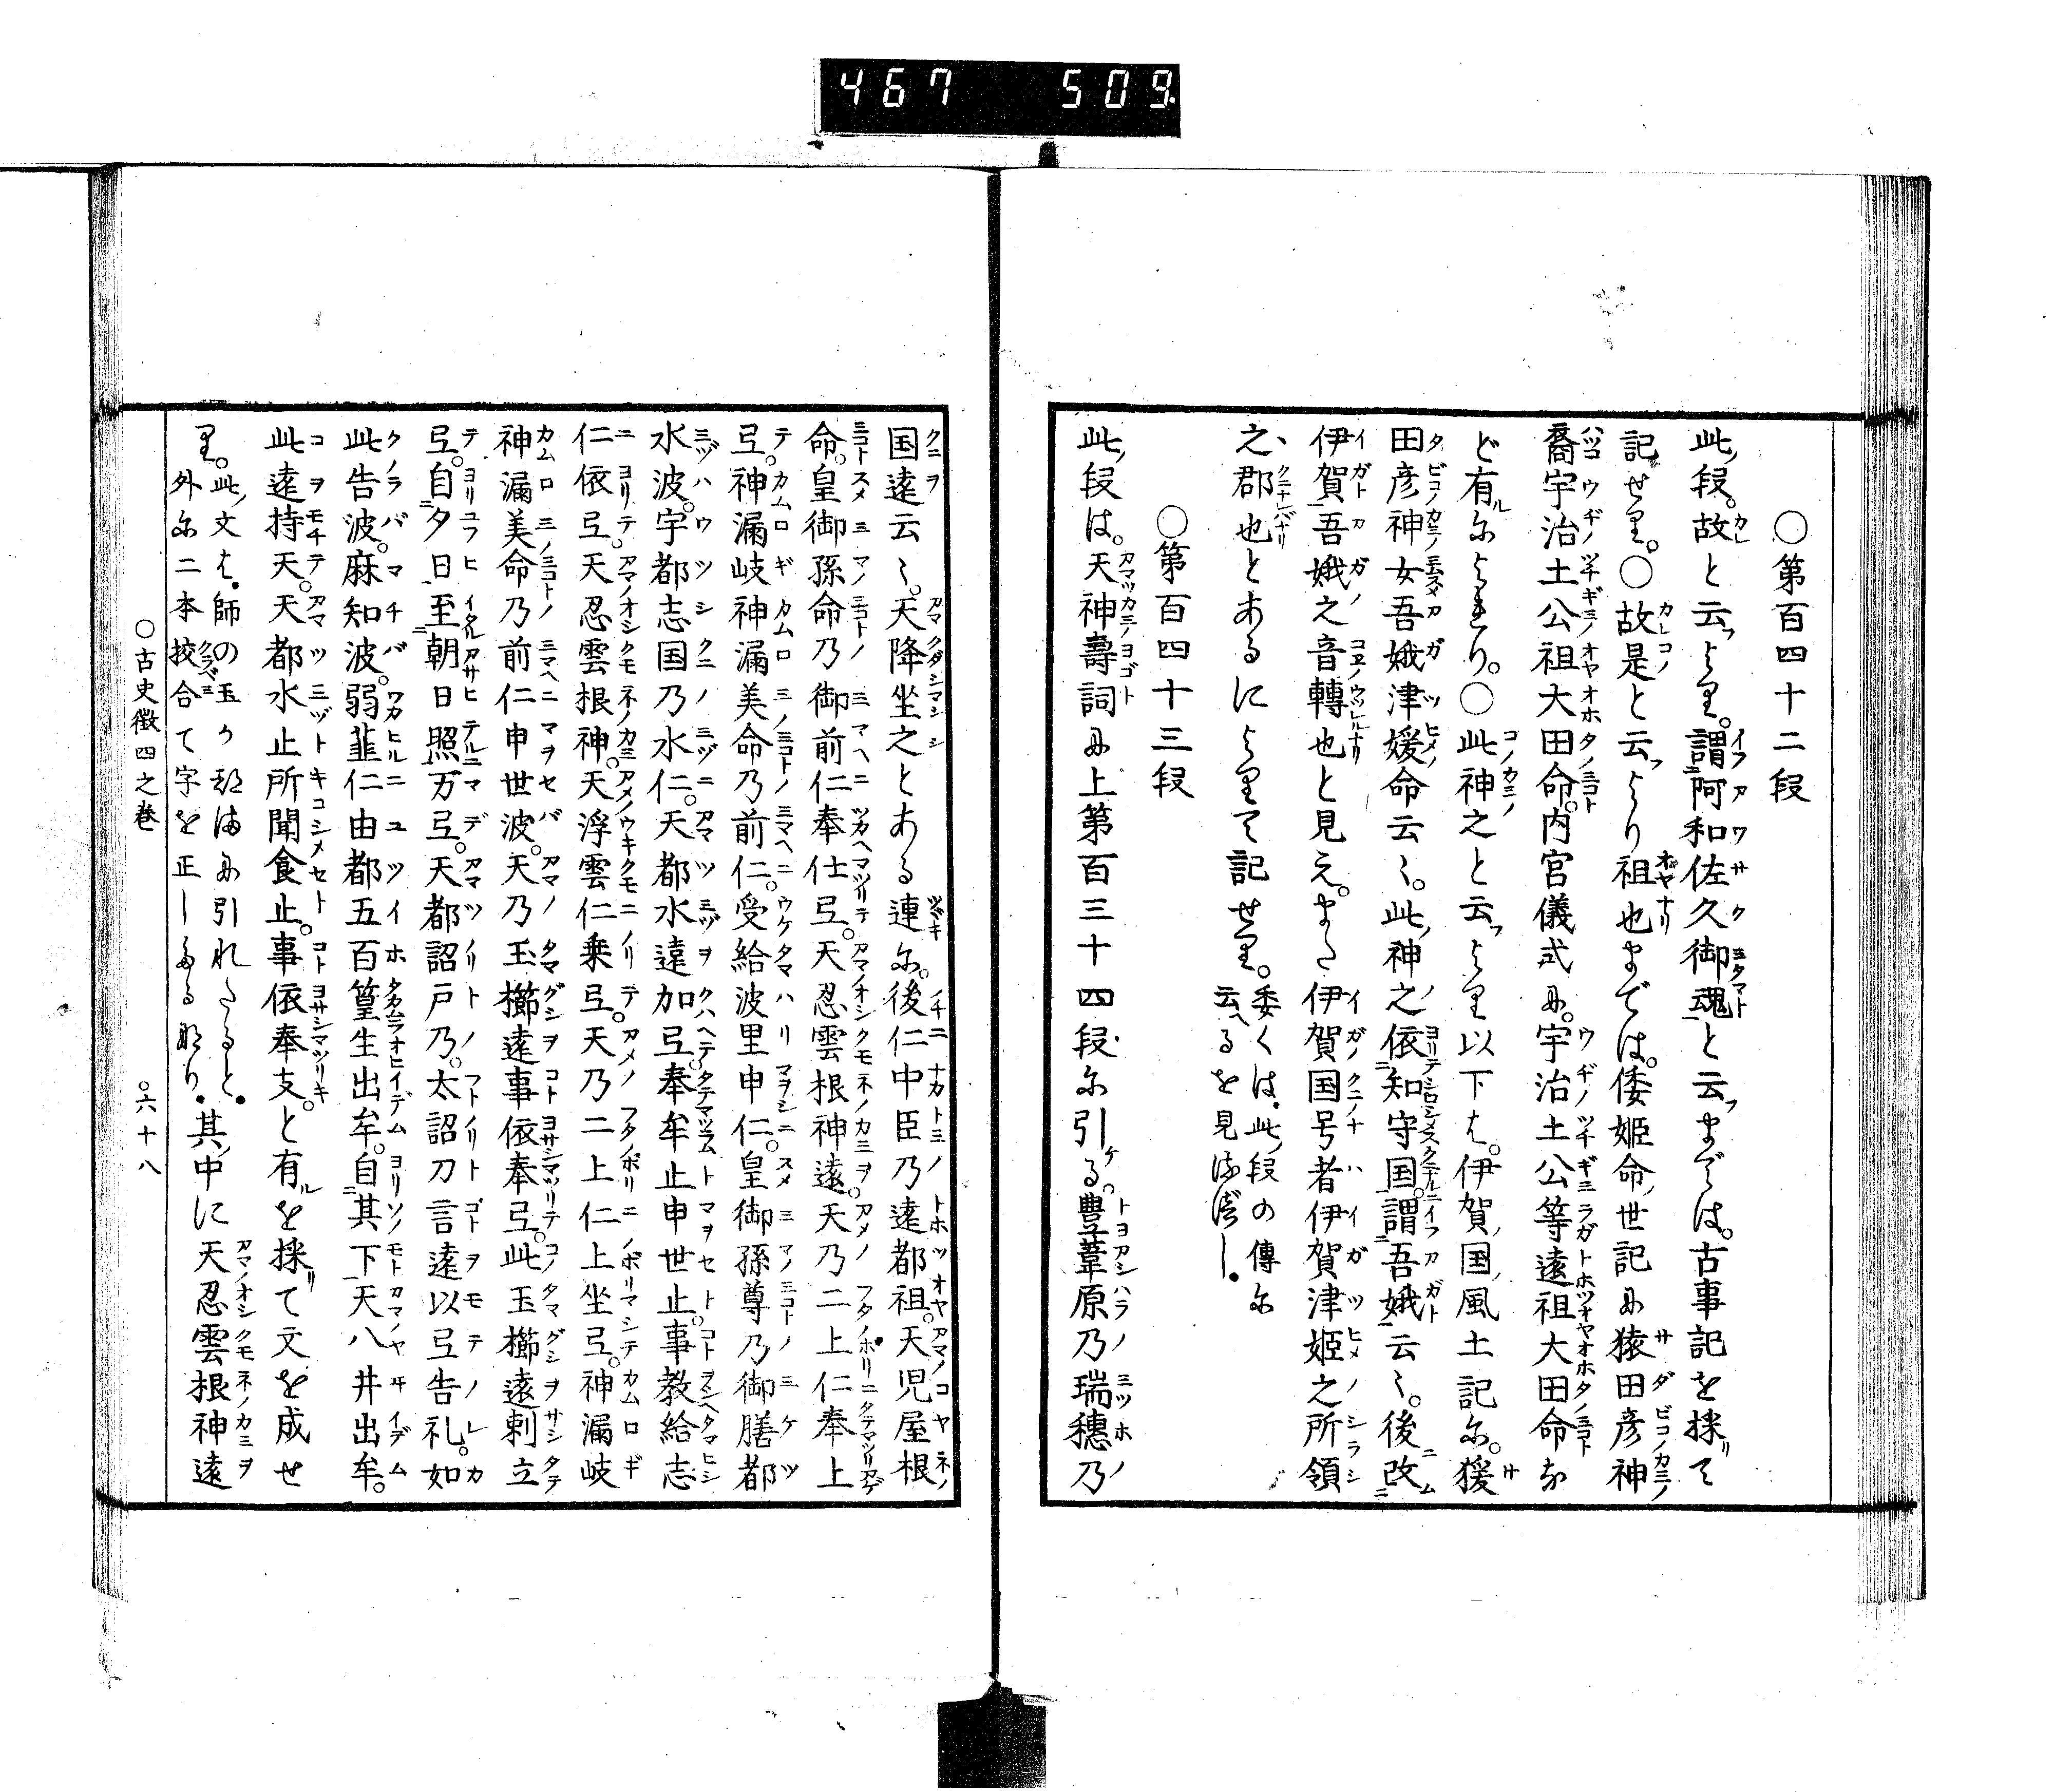 467 509.
○第百四十二段
此段。故と云より。謂阿和佐久御魂と云までは。古事記を採て
記せり。○故是と云より祖也までは。倭姫命世記に猿田彦神
裔宇治土公祖大田命。内宮儀式に。宇治土公等遠祖大田命な
ど有によれり。○此神之と云より以下は。伊賀国風土記に。猨
田彦神女吾娥津媛命云々。此神之依知守国。謂吾娥云々。後改
伊賀吾娥之音轉也と見え。また伊賀国号者伊賀津姫之所領
之郡也とあるによりて記せり。委くは此段の傳に
云へるを見べし。
○第百四十三段
此段は。天神壽詞に上第百三十四段に引る。豊葦原乃瑞穗乃
国遠云々。天降坐之とある連に。後仁中臣乃遠都祖。天児屋根
命。皇御孫命乃御前仁奉仕弖。天忍雲根神遠。天乃二上仁奉上
弖。神漏岐神漏美命乃前仁。受給波里申仁。皇御孫尊乃御膳都
水波。宇都志国乃水仁。天都水遠加弖。奉牟止申世止。事教給志
仁依弖。天忍雲根神。天浮雲仁乗弖。天乃二上仁上坐弖。神漏岐
神漏美命乃前仁申世波。天乃玉櫛遠事依奉弖。此玉櫛遠刺立
弖。自夕日至朝日照万弖。天都詔戸乃。太詔刀言遠以弖告礼。如
此告波。麻知波。弱韮仁由都五百篁生出牟。自其下天八井出牟。
此遠持天。天都水止所聞食止。事依奉支。と有を採て文を成せ
り。此文は。師の玉か勝まに引れたると。
外に二本挍合て字を正したるなり。其中に天忍雲根神遠
○古史徴四之巻 ○六十八